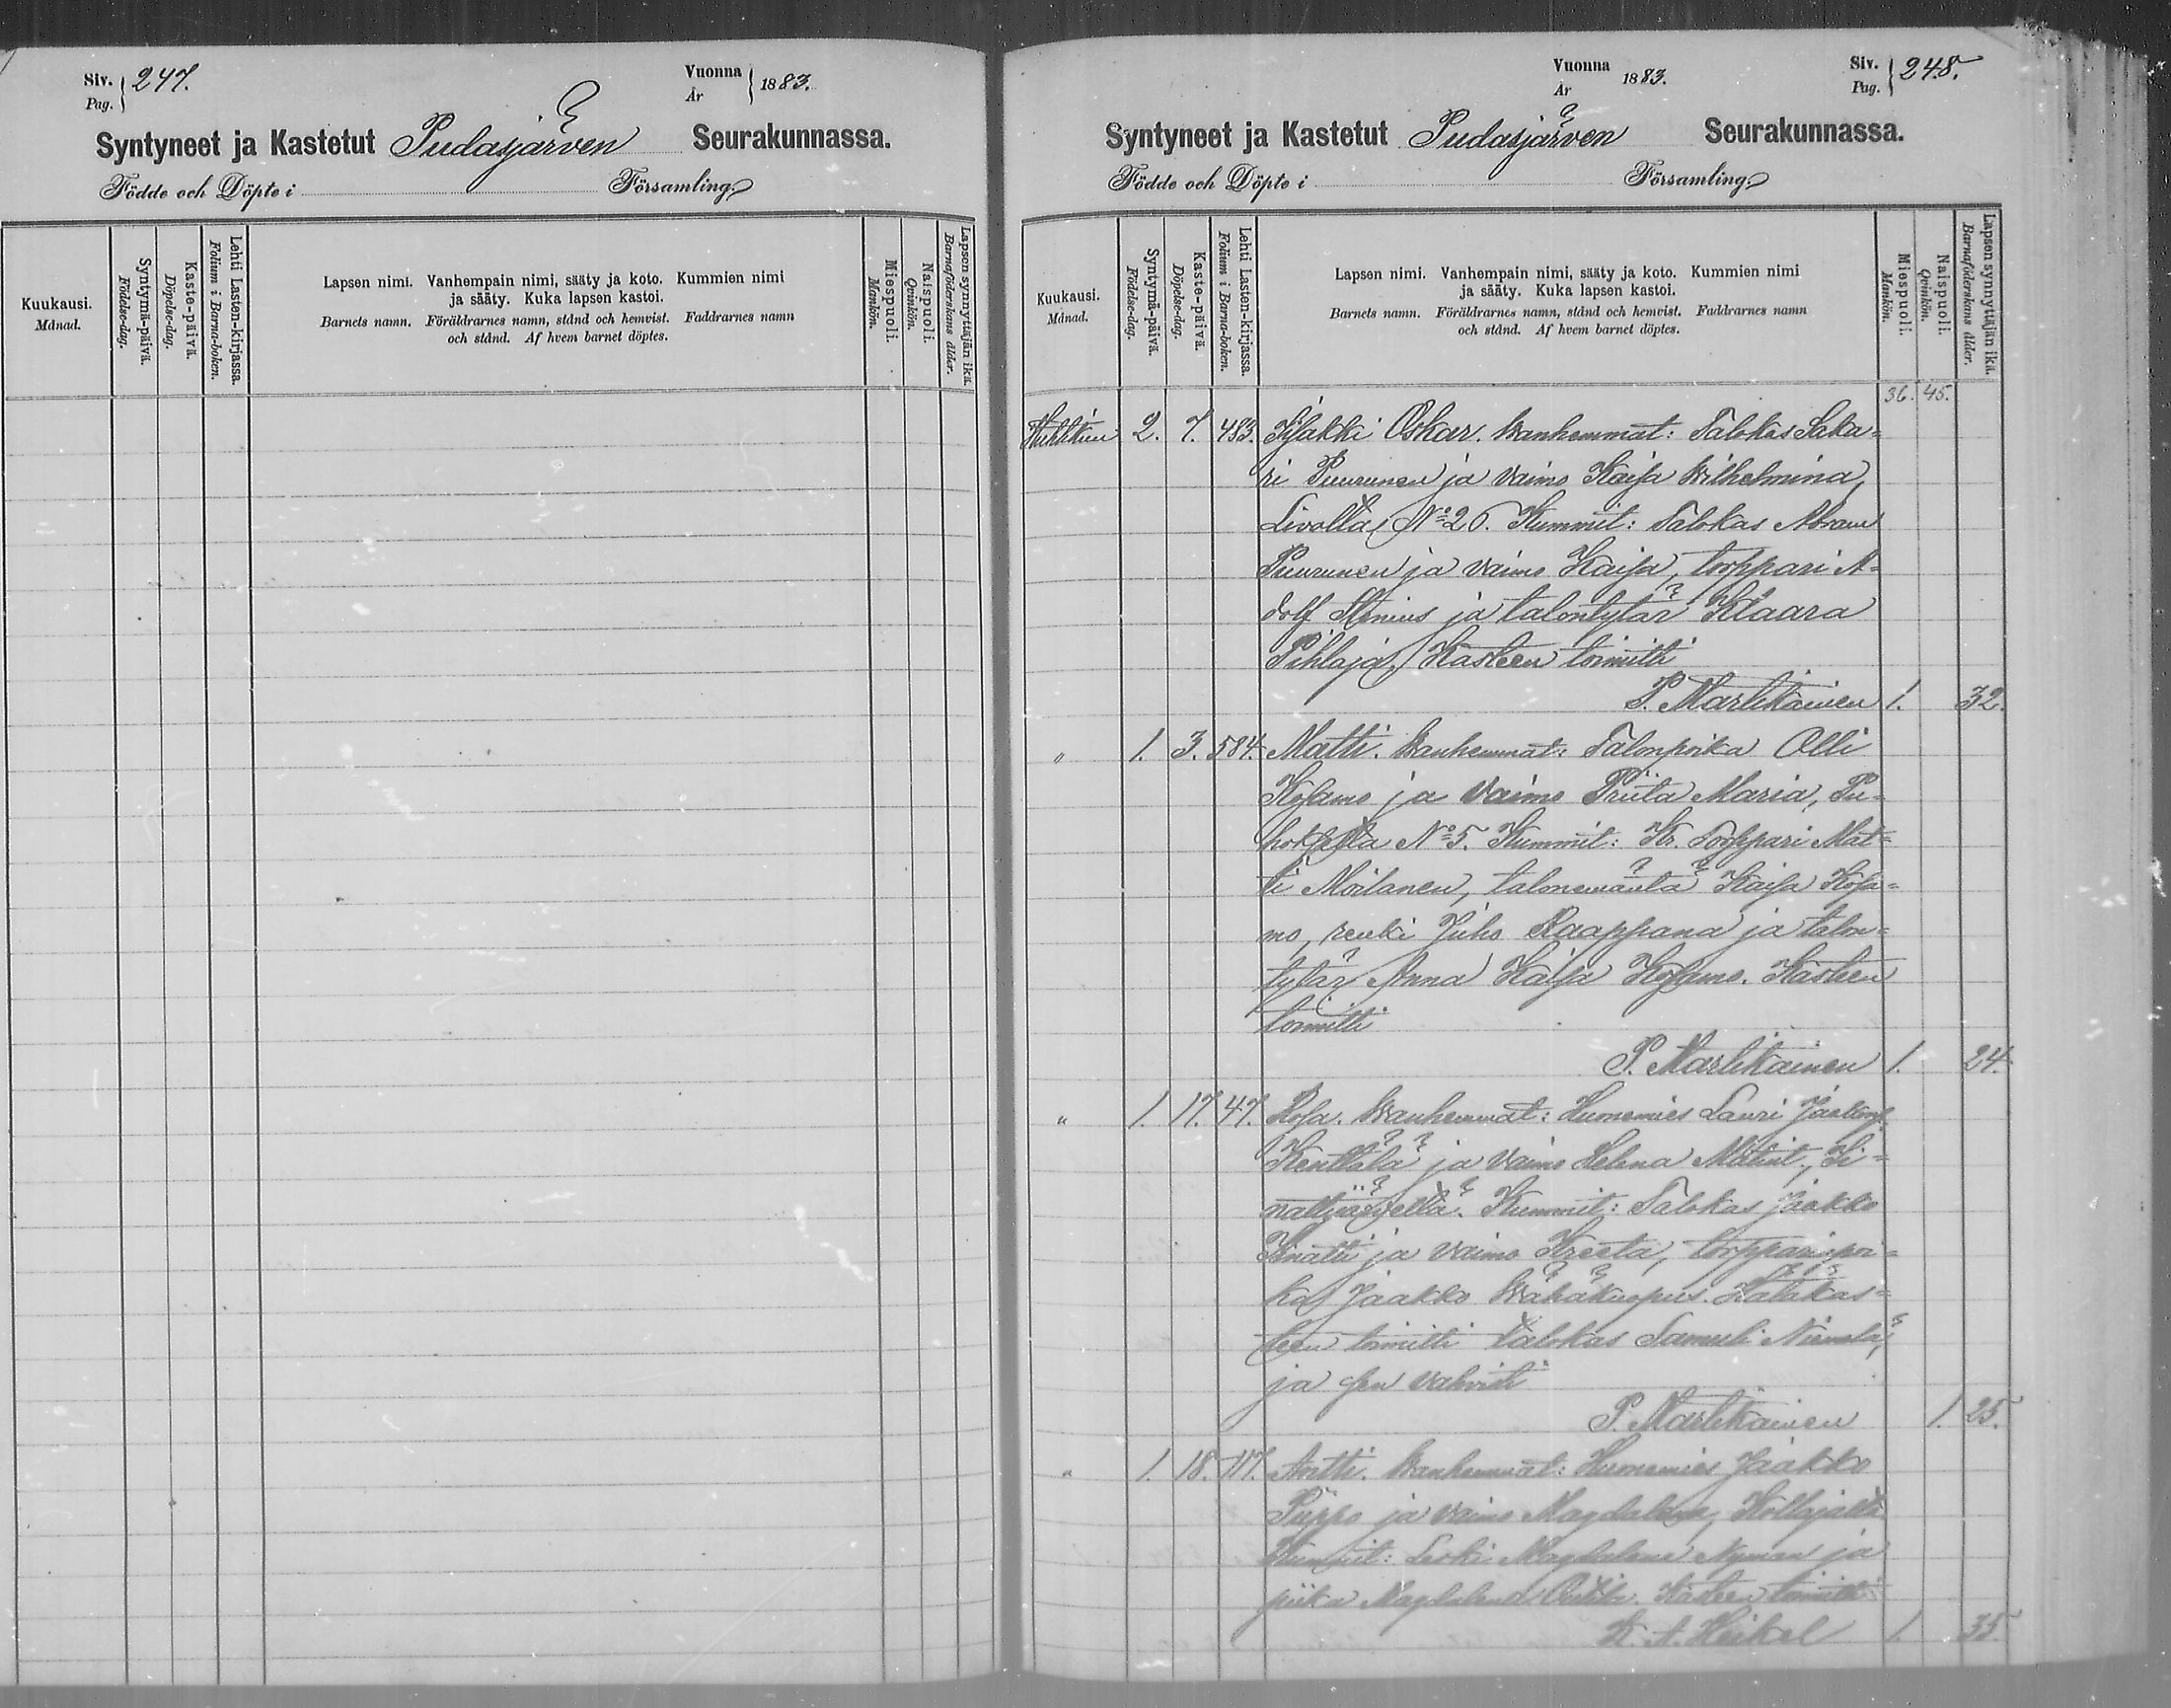 Siv. 247.
Pag.
Vuonna 1883.
År
Syntyneet ja Kastetut Pudasjärven Seurakunnassa.
Födde och Döpte i Församling.
Kuukausi.
Månad.
Syntymä-päivä.
Födelse-dag.
Kaste-päivä.
Döpelse-dag.
Lehti Lasten-kirjassa.
Folium i Barna-boken.
Lapsen nimi. Vanhempain nimi, sääty ja koto. Kummien nimi
ja sääty. Kuka lapsen kastoi.
Barnets namn. Föräldrarnes namn, stånd och hemvist. Faddrarnes namn
och stånd. Af hvem barnet döptes.
Miespuoli.
Mankön.
Naispuoli.
Qvinkön.
Lapsen synnyttäjän ikä.
Barnaföderskans ålder.
Vuonna 1883.
År
Siv. 248.
Pag.
Syntyneet ja Kastetut Pudasjärven Seurakunnassa.
Födde och Döpte i Församling.
Kuukausi.
Månad.
Syntymä-päivä.
Födelse-dag.
Kaste-päivä.
Döpelse-dag.
Lehti Lasten-kirjassa.
Folium i Barna-boken.
Lapsen nimi. Vanhempain nimi, sääty ja koto. Kummien nimi
ja sääty. Kuka lapsen kastoi.
Barnets namn. Föräldrarnes namn, stånd och hemvist. Faddrarnes namn
och stånd. Af hvem barnet döptes.
Miespuoli.
Mankön.
Naispuoli.
Qvinkön.
Lapsen synnyttäjän ikä.
Barnaföderskans ålder.
36. 45.
Huhtikuu 2. 7. 483. Iisakki Oskar. Wanhemmat: Talokas Saka-
ri Puurunen ja vaimo Kaisa Wilhelmina,
Livolla No 26. Kummit: Talokas Abram
Puurunen ja vaimo Kaisa, torppari A-
dolf Stenius ja talontytär Klaara
Pihlaja. Kasteen toimitti
P. Martikainen 1. 32.
" 1. 3. 584. Matti. Wanhemmat: Talonpoika Olli
Kosamo ja vaimo Priita Maria, Pu-
hoksella No 5. Kummit: Kr. Torppari Mat-
ti Moilanen, talonemäntä Kaisa Kosa-
mo, renki Juho Kaappana ja talon-
tytär Anna Kaisa Kosamo. Kasteen
toimitti
P. Martikainen 1. 24.
" 1. 17. 47. Rosa. Wanhemmat: Huonemies Lauri
Kenttälä ja vaimo Helena Matint., Si-
Kummit: Talokas Jaakko
ja vaimo Kreeta, torpparipoi-
ka Jaakko Wähäkuopus. Hätäkas-
teen toimitti talokas Samuli Niemelä,
ja sen vahvisti
P. Martikainen 1. 25.
" 1. 18. 117. Antti. Wanhemmat: Huonemies Jaakko
Piippo ja vaimo Magdalena,
Kummit: Leski Magdalena Nyman ja
piika Magdalena Kasteen toimitti
K. A. Heikel 1. 35.